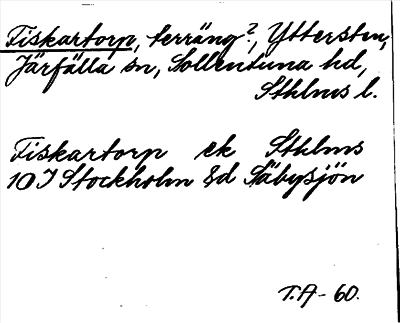 Fiskartorp, terräng?, Yttersten,
Järfälla sn, Sollentuna hd,
Sthlms l.
Fiskartorp ek Sthlms
10 J Stockholm Säbysjön
T.A - 60.